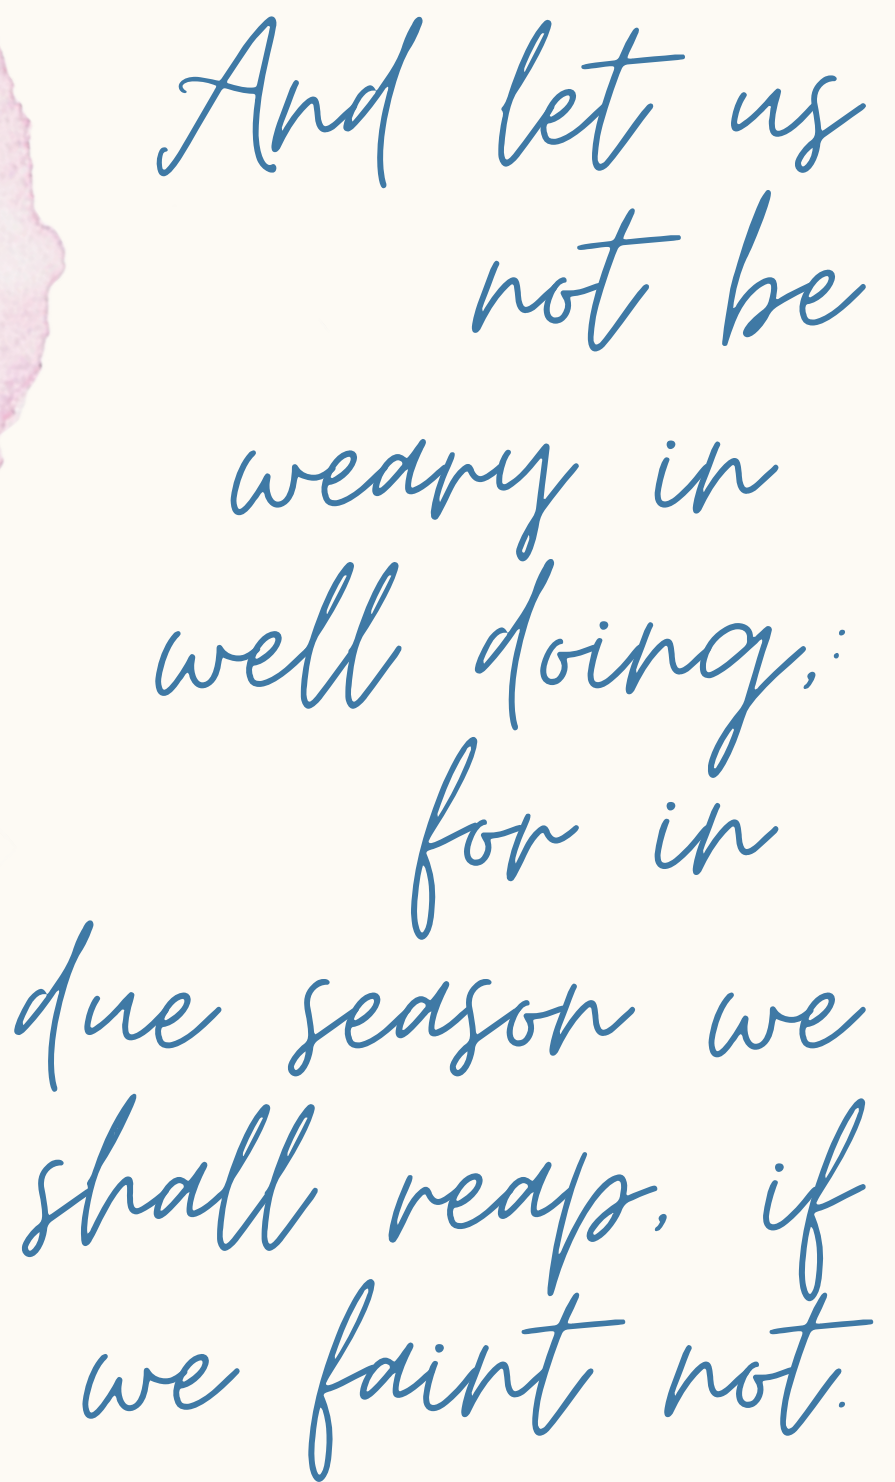 And let us
not be
weary in
well doing,:
for in
due season we
shall reap, if
we faint not.